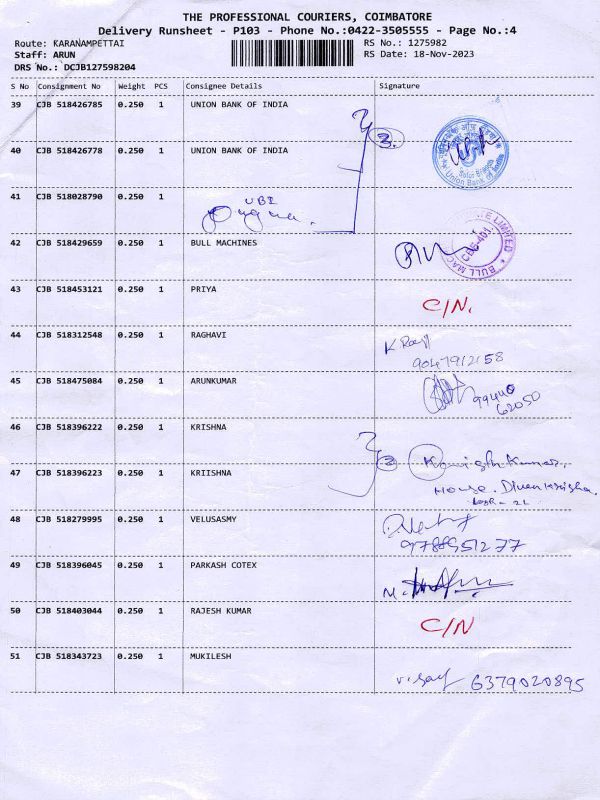 THE PROFESSIONAL COURIERS, COIMBATORE
Delivery Runsheet - P103 - Phone No.:0422-3505555 - Page No.:4
Route: KARANAMPETTAI RS No.: 1275982
Staff: ARUN RS Date: 18-Nov-2023
DRS No.: DCJB127598204
S No Consignment No Weight PCS Consignee Details Signature
39 CJB 518426785 0.250 1 UNION BANK OF INDIA
2.
40 CJB 518426778 0.250 1 UNION BANK OF INDIA
Sulur Branch
Union Bank of India
41 CJB 518028790 0.250 1
UBI
42 CJB 518429659 0.250 1 BULL MACHINES
CBE-401.
LIMITED * BULL
43 CJB 518453121 0.250 1 PRIYA
C/N.
44 CJB 518312548 0.250 1 RAGHAVI
9047912158
45 CJB 518475084 0.250 1 ARUNKUMAR
99440
62050
46 CJB 518396222 0.250 1 KRISHNA
2
47 CJB 518396223 0.250 1 KRIISHNA
House.
48 CJB 518279995 0.250 1 VELUSASMY
9788951277
49 CJB 518396045 0.250 1 PARKASH COTEX
50 CJB 518403044 0.250 1 RAJESH KUMAR
C/N
51 CJB 518343723 0.250 1 MUKILESH
6379020895